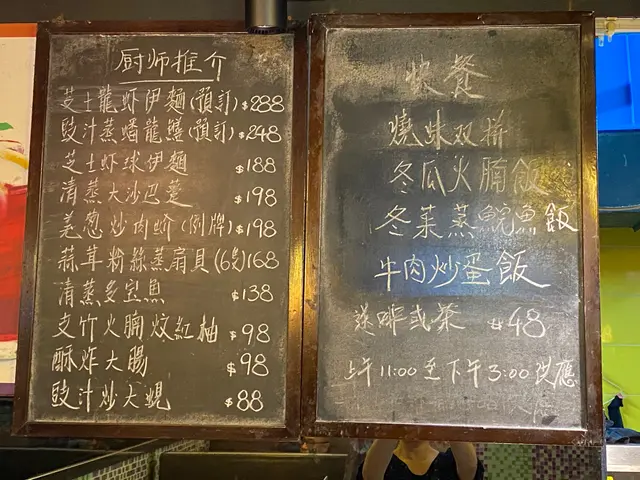 厨师推介
芝士龍虾伊麵(預訂) $288
豉汁蒸蟠龍鱔(預訂) $248
芝士虾球伊麵 $188
清蒸大沙巴躉 $198
羌葱炒肉蚧(例牌) $198
蒜茸粉絲蒸扇貝(6隻) 168
清蒸多宝魚 $138
支竹火腩炆紅柚 $98
酥炸大腸 $98
豉汁炒大蜆 $88
快餐
燒味双拼
冬瓜火腩飯
冬菜蒸鯇魚飯
牛肉炒蛋飯
送啡或茶 48
上午11:00至下午3:00供應